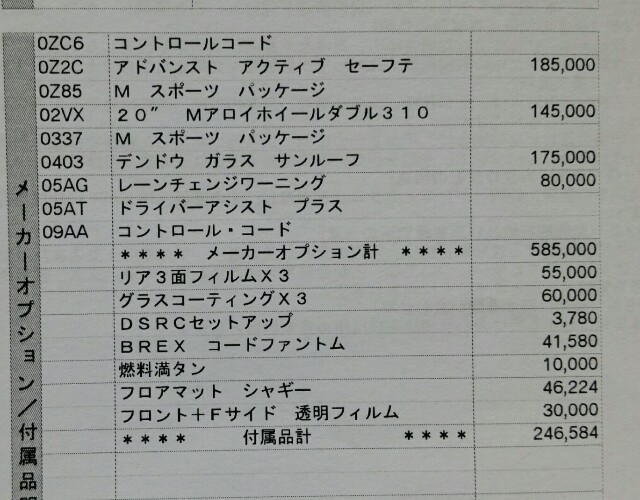 0ZC6 コントロールコード
0Z2C アドバンスト アクティブ セーフテ 185,000
0Z85 M スポーツ パッケージ
02VX 20″ Mアロイホイールダブル310 145,000
0337 M スポーツ パッケージ
0403 デンドウ ガラス サンルーフ 175,000
05AG レーンチェンジワーニング 80,000
05AT ドライバーアシスト プラス
09AA コントロール・コード
**** メーカーオプション計 **** 585,000
リア3面フィルムX3 55,000
グラスコーティングX3 60,000
DSRCセットアップ 3,780
BREX コードファントム 41,580
燃料満タン 10,000
フロアマット シャギー 46,224
フロント+Fサイド 透明フィルム 30,000
**** 付属品計 **** 246,584
メーカーオプション/付属品